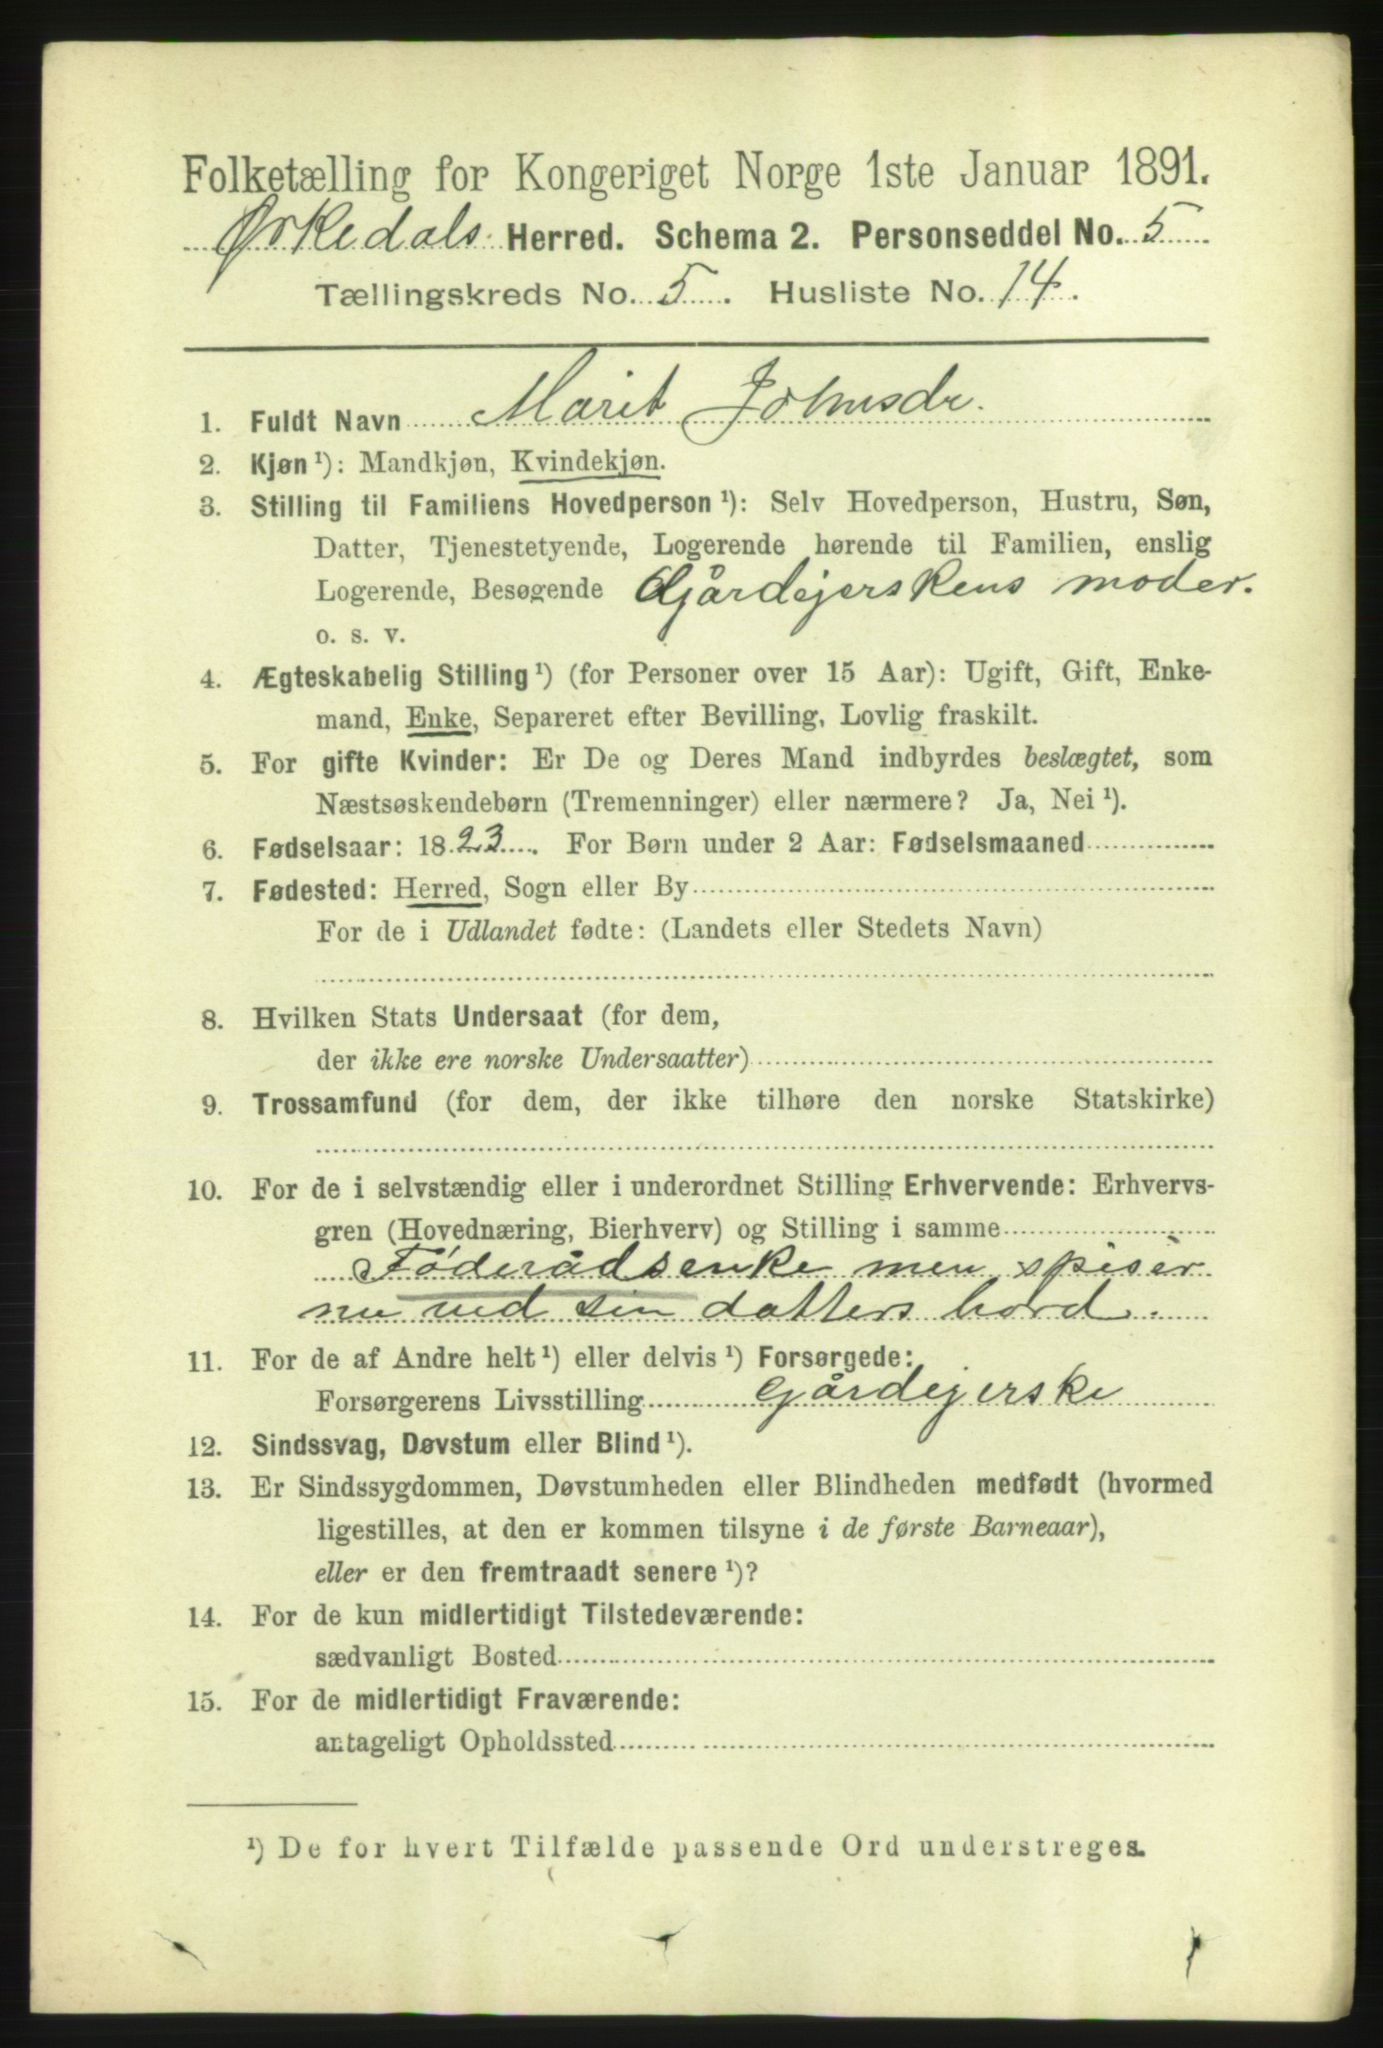 Folketælling for Kongeriget Norge 1ste Januar 1891.
Ørkedals Herred. Schema 2. Personseddel No. 5
Tællingskreds No. 5. Husliste No. 14.
1. Fuldt Navn Marit Johnsdr.
2. Kjøn ¹): Mandkjøn, Kvindekjøn.
3. Stilling til Familiens Hovedperson ¹): Selv Hovedperson, Hustru, Søn,
Datter, Tjenestetyende, Logerende hørende til Familien, enslig
Logerende, Besøgende Gårdejerskens moder.
o. s. v.
4. Ægteskabelig Stilling ¹) (for Personer over 15 Aar): Ugift, Gift, Enke-
mand, Enke, Separeret efter Bevilling, Lovlig fraskilt.
5. For gifte Kvinder: Er De og Deres Mand indbyrdes beslægtet, som
Næstsøskendebørn (Tremenninger) eller nærmere? Ja, Nei ¹).
6. Fødselsaar: 1823. For Børn under 2 Aar: Fødselsmaaned
7. Fødested: Herred, Sogn eller By
For de i Udlandet fødte: (Landets eller Stedets Navn)
8. Hvilken Stats Undersaat (for dem,
der ikke ere norske Undersaatter)
9. Trossamfund (for dem, der ikke tilhøre den norske Statskirke)
10. For de i selvstændig eller i underordnet Stilling Erhvervende: Erhvervs-
gren (Hovednæring, Bierhverv) og Stilling i samme
Føderådsenke men spiser
nu ved sin datters bord.
11. For de af Andre helt ¹) eller delvis ¹) Forsørgede:
Forsørgerens Livsstilling Gårdejerske
12. Sindssvag, Døvstum eller Blind ¹).
13. Er Sindssygdommen, Døvstumheden eller Blindheden medfødt (hvormed
ligestilles, at den er kommen tilsyne i de første Barneaar),
eller er den fremtraadt senere ¹)?
14. For de kun midlertidigt Tilstedeværende:
sædvanligt Bosted
15. For de midlertidigt Fraværende:
antageligt Opholdssted
¹) De for hvert Tilfælde passende Ord understreges.